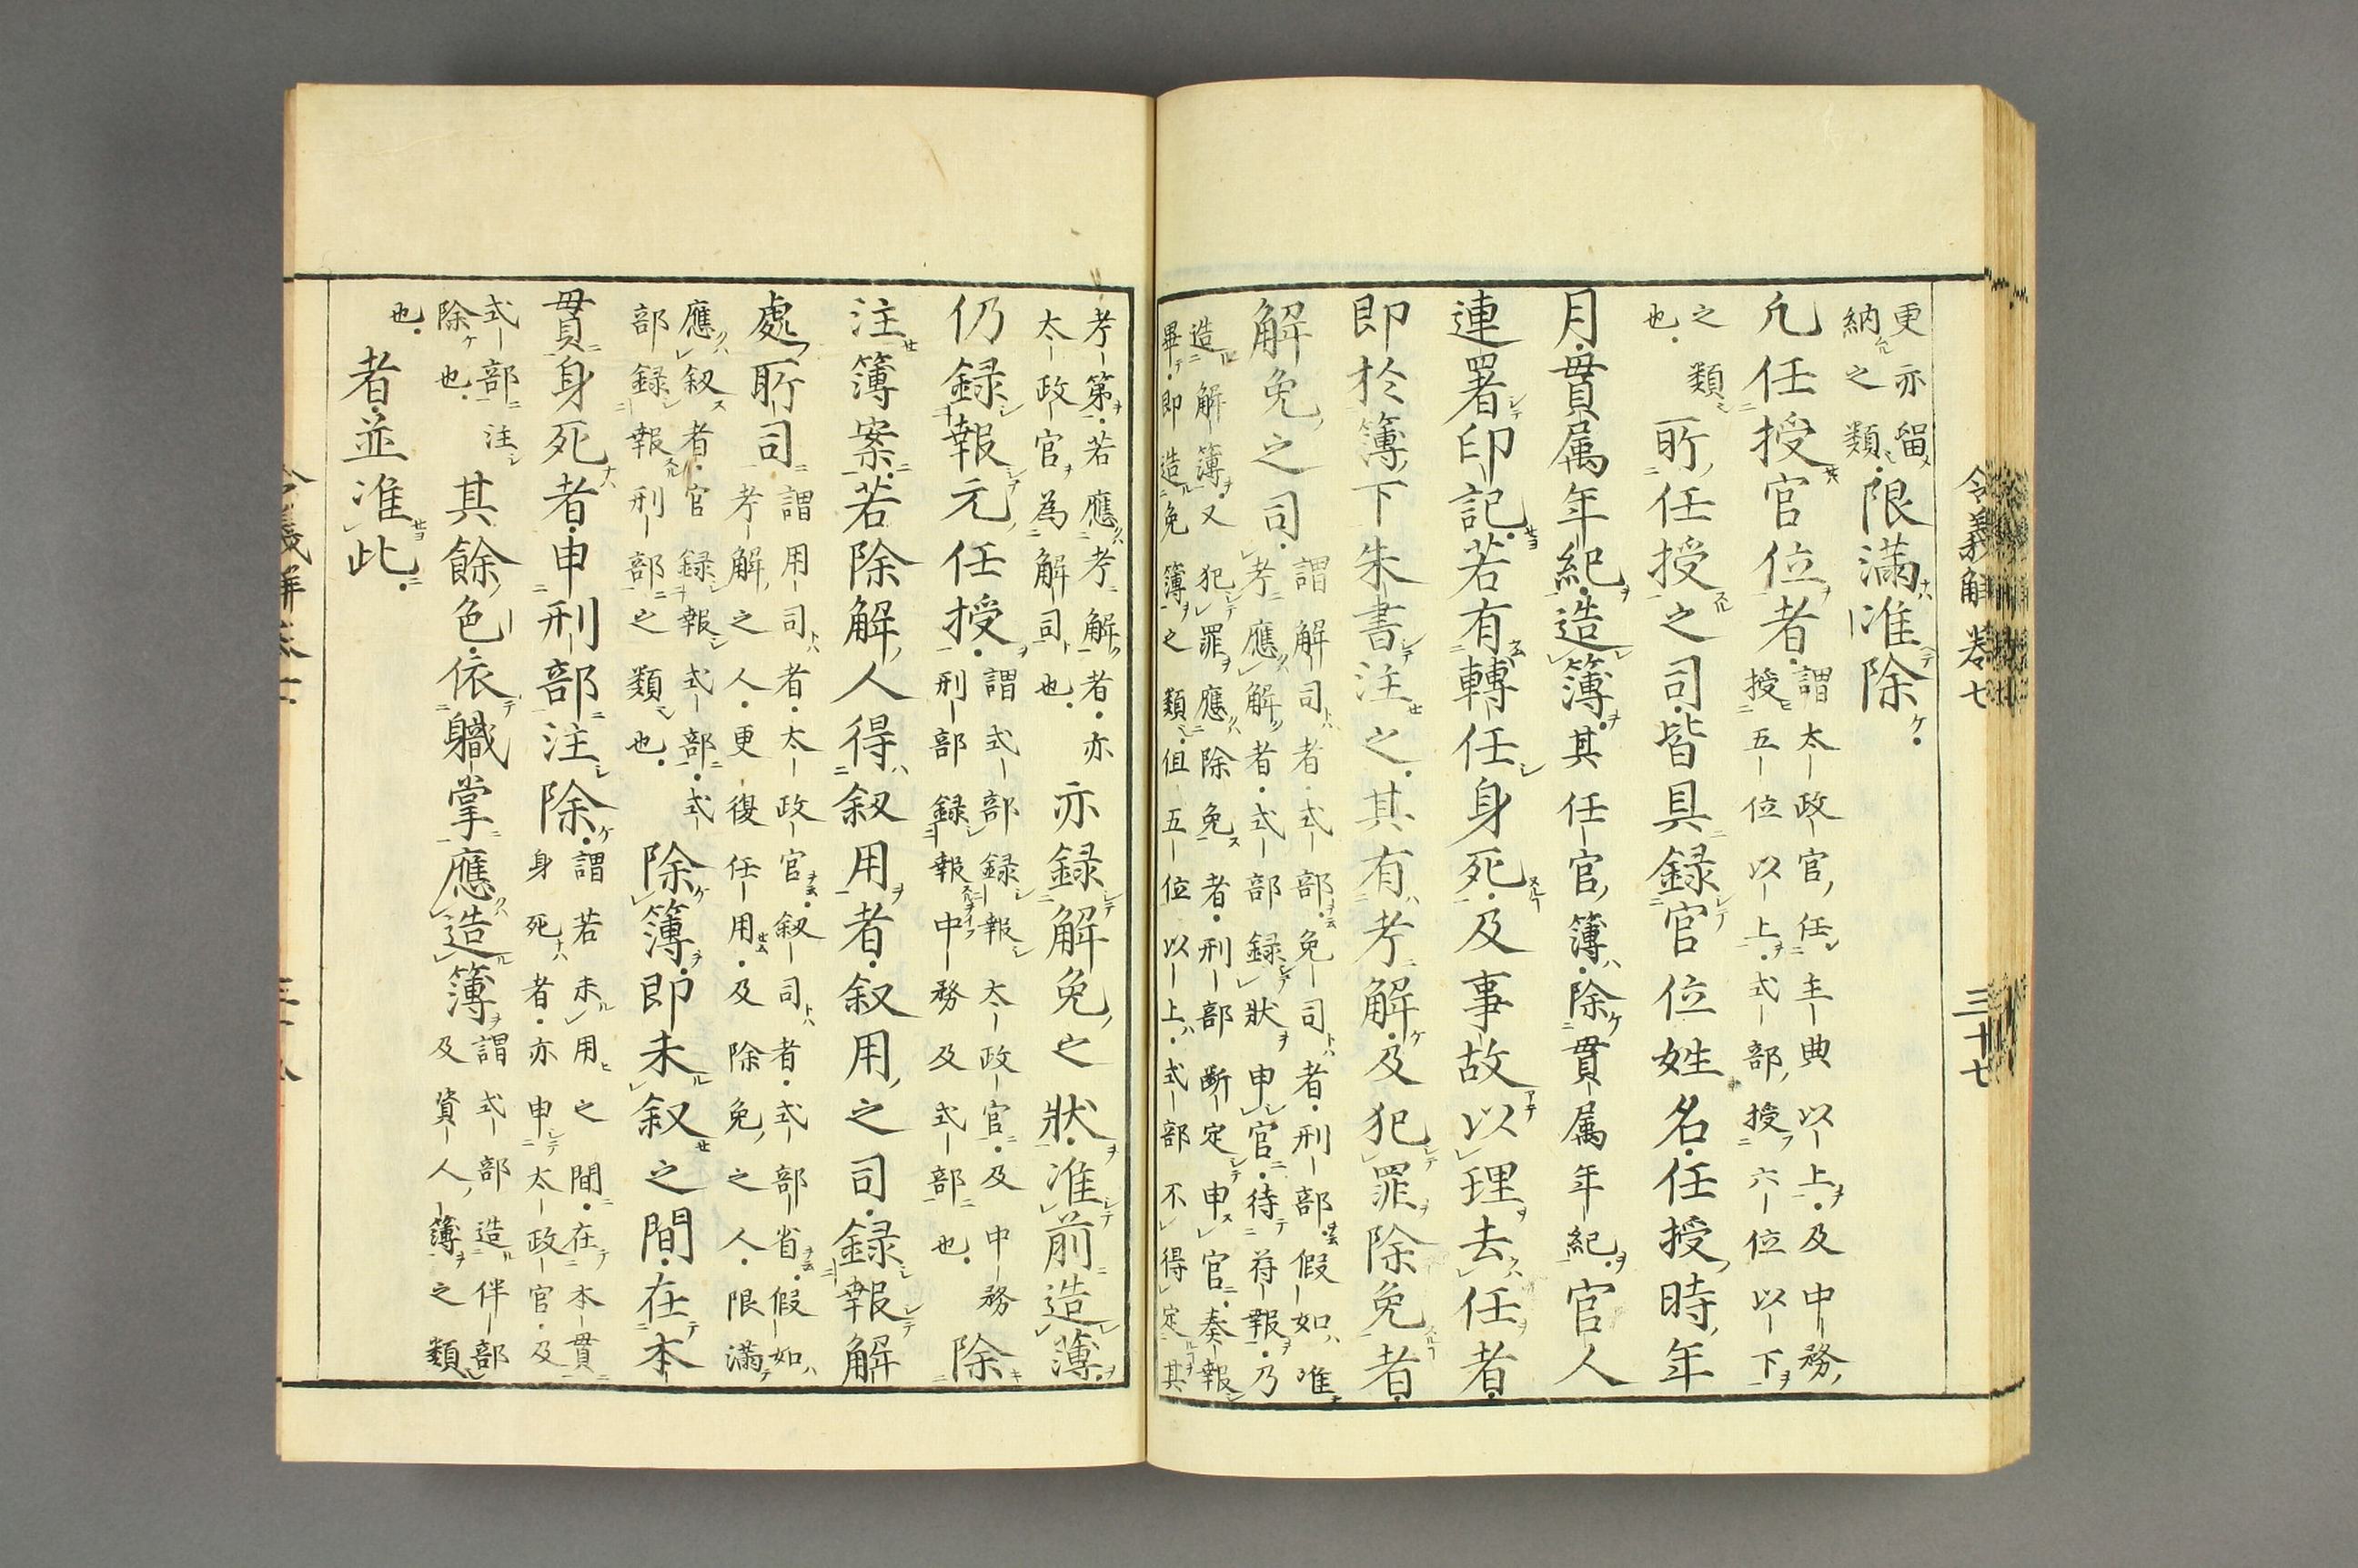 令義解卷七
三十七
更亦留
納之類限滿准除
凢任授官位者謂太政官任主典以上及中務
授五位以上式部授六位以下
之類
也所任授之司皆具録官位姓名任授時年
月貫属年紀造簿其任官簿除貫属年紀官人
連署印記若有轉任身死及事故以理去任者
即於簿下朱書注之其有考解及犯罪除免者
解免之司謂解司者式部免司者刑部假如唯
考應解者式部録狀申官待符報乃
造解簿又犯罪應除免者刑部断定申官奏報
畢即造免簿之類但五位以上式部不得定其
考第若應考解者亦
太政官為解司也亦録解免之狀准前造簿
仍録報元任授謂式部録報太政官及中務
刑部録報中務及式部也除
注簿案若除解人得叙用者叙用之司録報解
處所司謂用司者太政官叙司者式部省假如
考解之人更復任用及除免之人限滿
應叙者官録報式部式
部録報刑部之類也除簿即未叙之間在本
貫身死者申刑部注除謂若未用之間在本貫
身死者亦申太政官及
式部注
除也其餘色依職掌應造簿謂式部造伴部
及資人簿之類
也者並准此